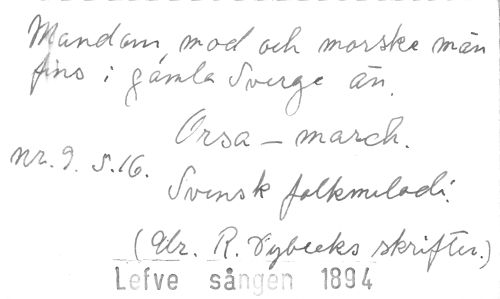 Mandom, mod och morske män
fins i gamla Sverge än.
Orsa – march.
nr. 9. s. 16.
Svensk folkmelodi.
(Ur. R. Dybecks skrifter.)
Lefve sången 1894